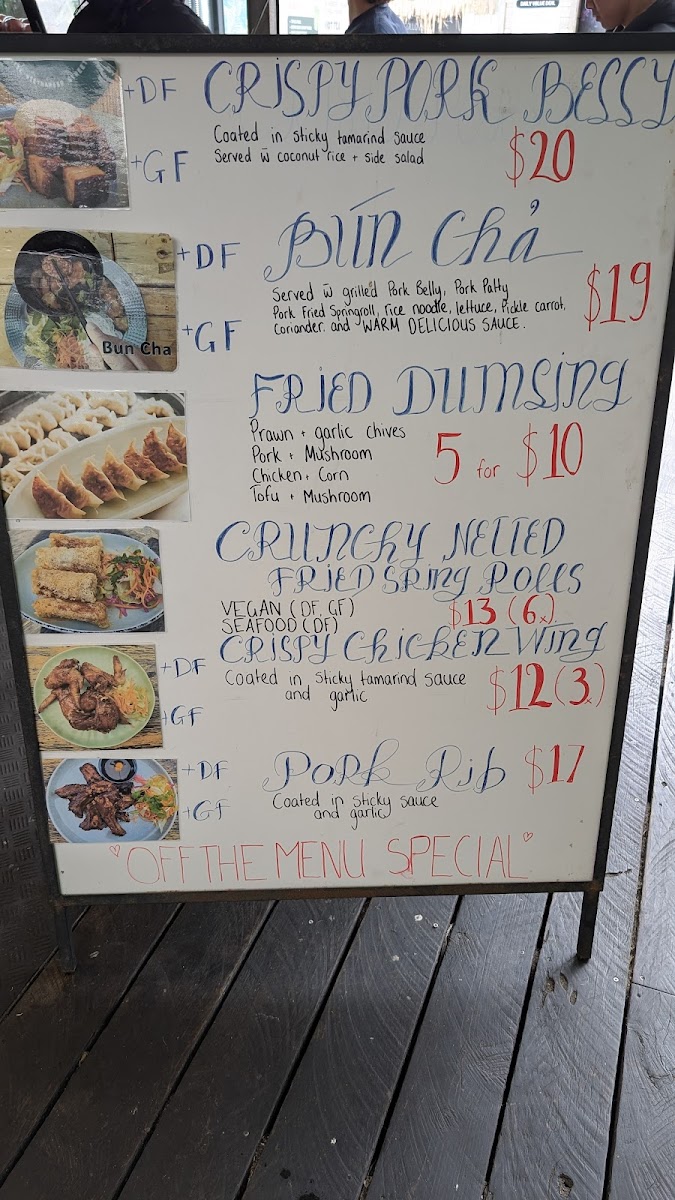 +DF CRISPY PORK BELLY
Coated in sticky tamarind sauce
+GF Served w̄ coconut rice + side salad
$20
+DF BÚN Chả
Served w̄ grilled Pork Belly, Pork Patty
$19
Pork Fried Springroll, rice noodle, lettuce, Pickle carrot,
+GF Coriander. and WARM DELICIOUS SAUCE.
Bun Cha
FRIED DUMLING
Prawn + garlic chives
Pork + Mushroom
5 for $10
Chicken + Corn
Tofu + Mushroom
CRUNCHY NETTED
FRIED SPRING ROLLS
VEGAN (DF, GF) $13 (6x)
SEAFOOD (DF)
CRISPY CHICKEN WING
+DF Coated in sticky tamarind sauce
and garlic $12 (3x)
+GF
+DF PORK Rib $17
+GF Coated in sticky sauce
and garlic
"OFF THE MENU SPECIAL"